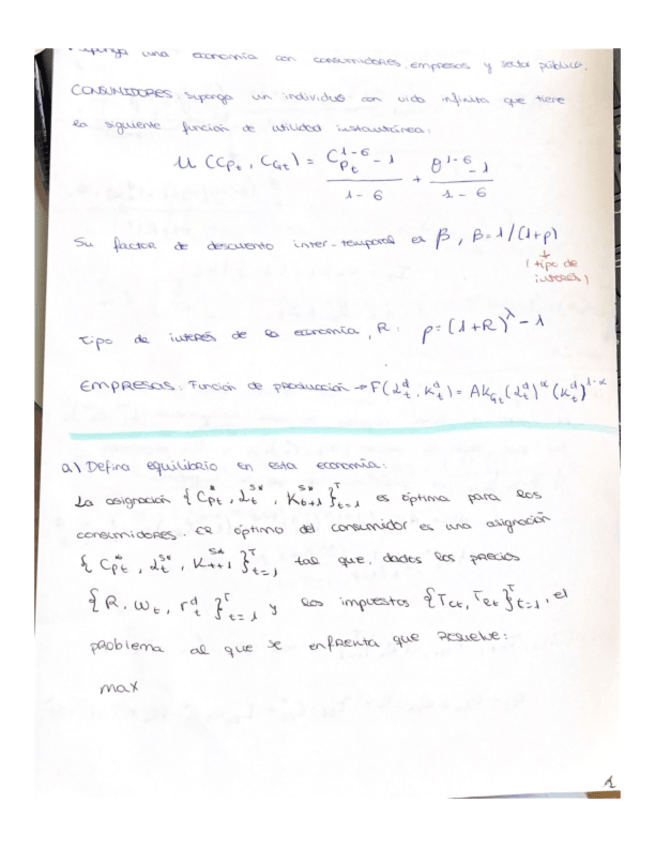 Suponga una economía con consumidores, empresas y sector público.
CONSUMIDORES: suponga un individuo con vida infinita que tiene
la siguiente función de utilidad instantánea:
U (C_Pt, C_Gt) = (C_Pt^(1-σ) - 1)/(1-σ) + (θ^(1-σ) - 1)/(1-σ)
Su factor de descuento inter-temporal es β, β=1/(1+ρ)
(tipo de
interés)
Tipo de interés de la economía, R: ρ=(1+R)^λ-1
EMPRESAS: Función de producción → F(L_t^d, K_t^d) = AK_Gt (L_t^d)^α (K_t^d)^(1-α)
a) Defina equilibrio en esta economía:
La asignación {C_Pt^*, L_t^S*, K_t+1^S*}_t=1^T es óptima para los
consumidores. El óptimo del consumidor es una asignación
{C_Pt^*, L_t^S*, K_t+1^S*}_t=1^T tal que, dados los precios
{R, W_t, r_t^d}_t=1^T y los impuestos {T_ct, T_et}_t=1^T, el
problema al que se enfrenta que resuelve:
max
1